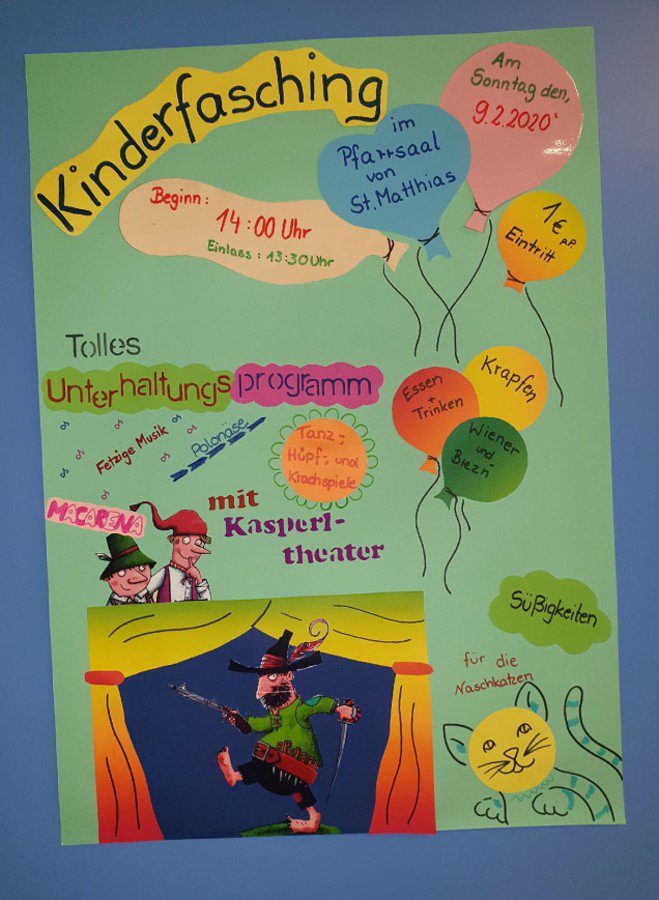 Kinderfasching
Am
Sonntag den,
9.2.2020
im
Pfarrsaal
von
St. Matthias
Beginn:
14:00 Uhr
Einlass: 13:30 Uhr
1€ p.P.
Eintritt
Tolles
Unterhaltungsprogramm
Fetzige Musik
Polonäse
Tanz-,
Hüpf-, und
Krachspiele
MACARENA
mit
Kasperl-
theater
Essen
+
Trinken
Krapfen
Wiener
und
Brezn
Süßigkeiten
für die
Naschkatzen